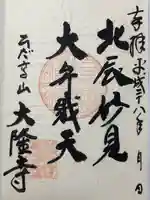 奉拝 平成十八年 月 日
北辰妙見
大弁財天
大隆寺